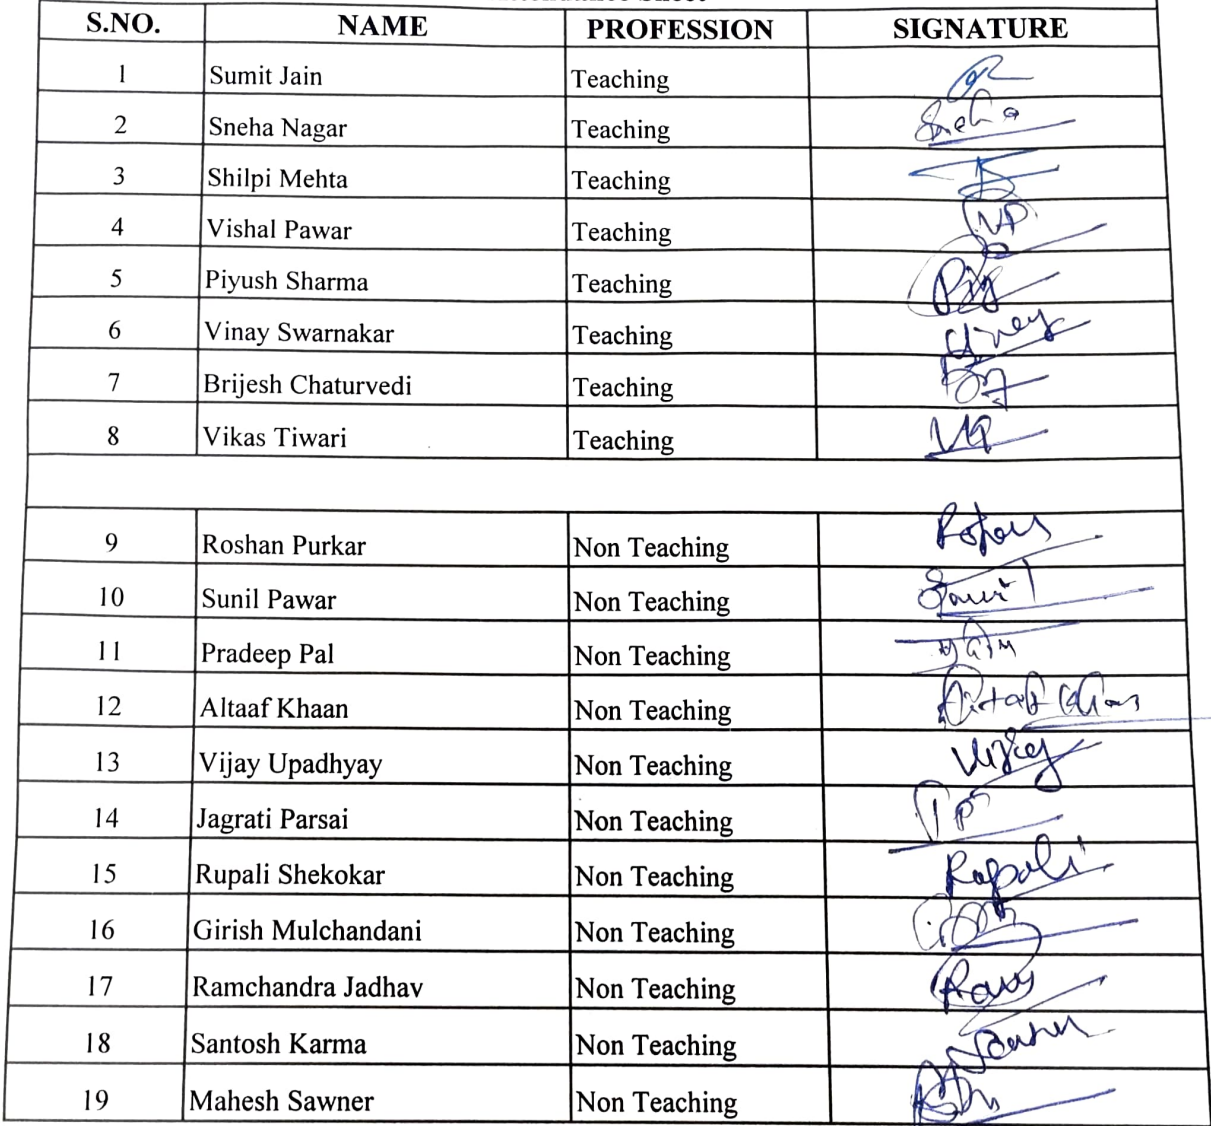 S.NO. NAME PROFESSION SIGNATURE
1 Sumit Jain Teaching
2 Sneha Nagar Teaching Sneha
3 Shilpi Mehta Teaching
4 Vishal Pawar Teaching VP
5 Piyush Sharma Teaching
6 Vinay Swarnakar Teaching
7 Brijesh Chaturvedi Teaching
8 Vikas Tiwari Teaching
9 Roshan Purkar Non Teaching
10 Sunil Pawar Non Teaching
11 Pradeep Pal Non Teaching
12 Altaaf Khaan Non Teaching
13 Vijay Upadhyay Non Teaching Vijay
14 Jagrati Parsai Non Teaching
15 Rupali Shekokar Non Teaching Rupali
16 Girish Mulchandani Non Teaching
17 Ramchandra Jadhav Non Teaching
18 Santosh Karma Non Teaching
19 Mahesh Sawner Non Teaching